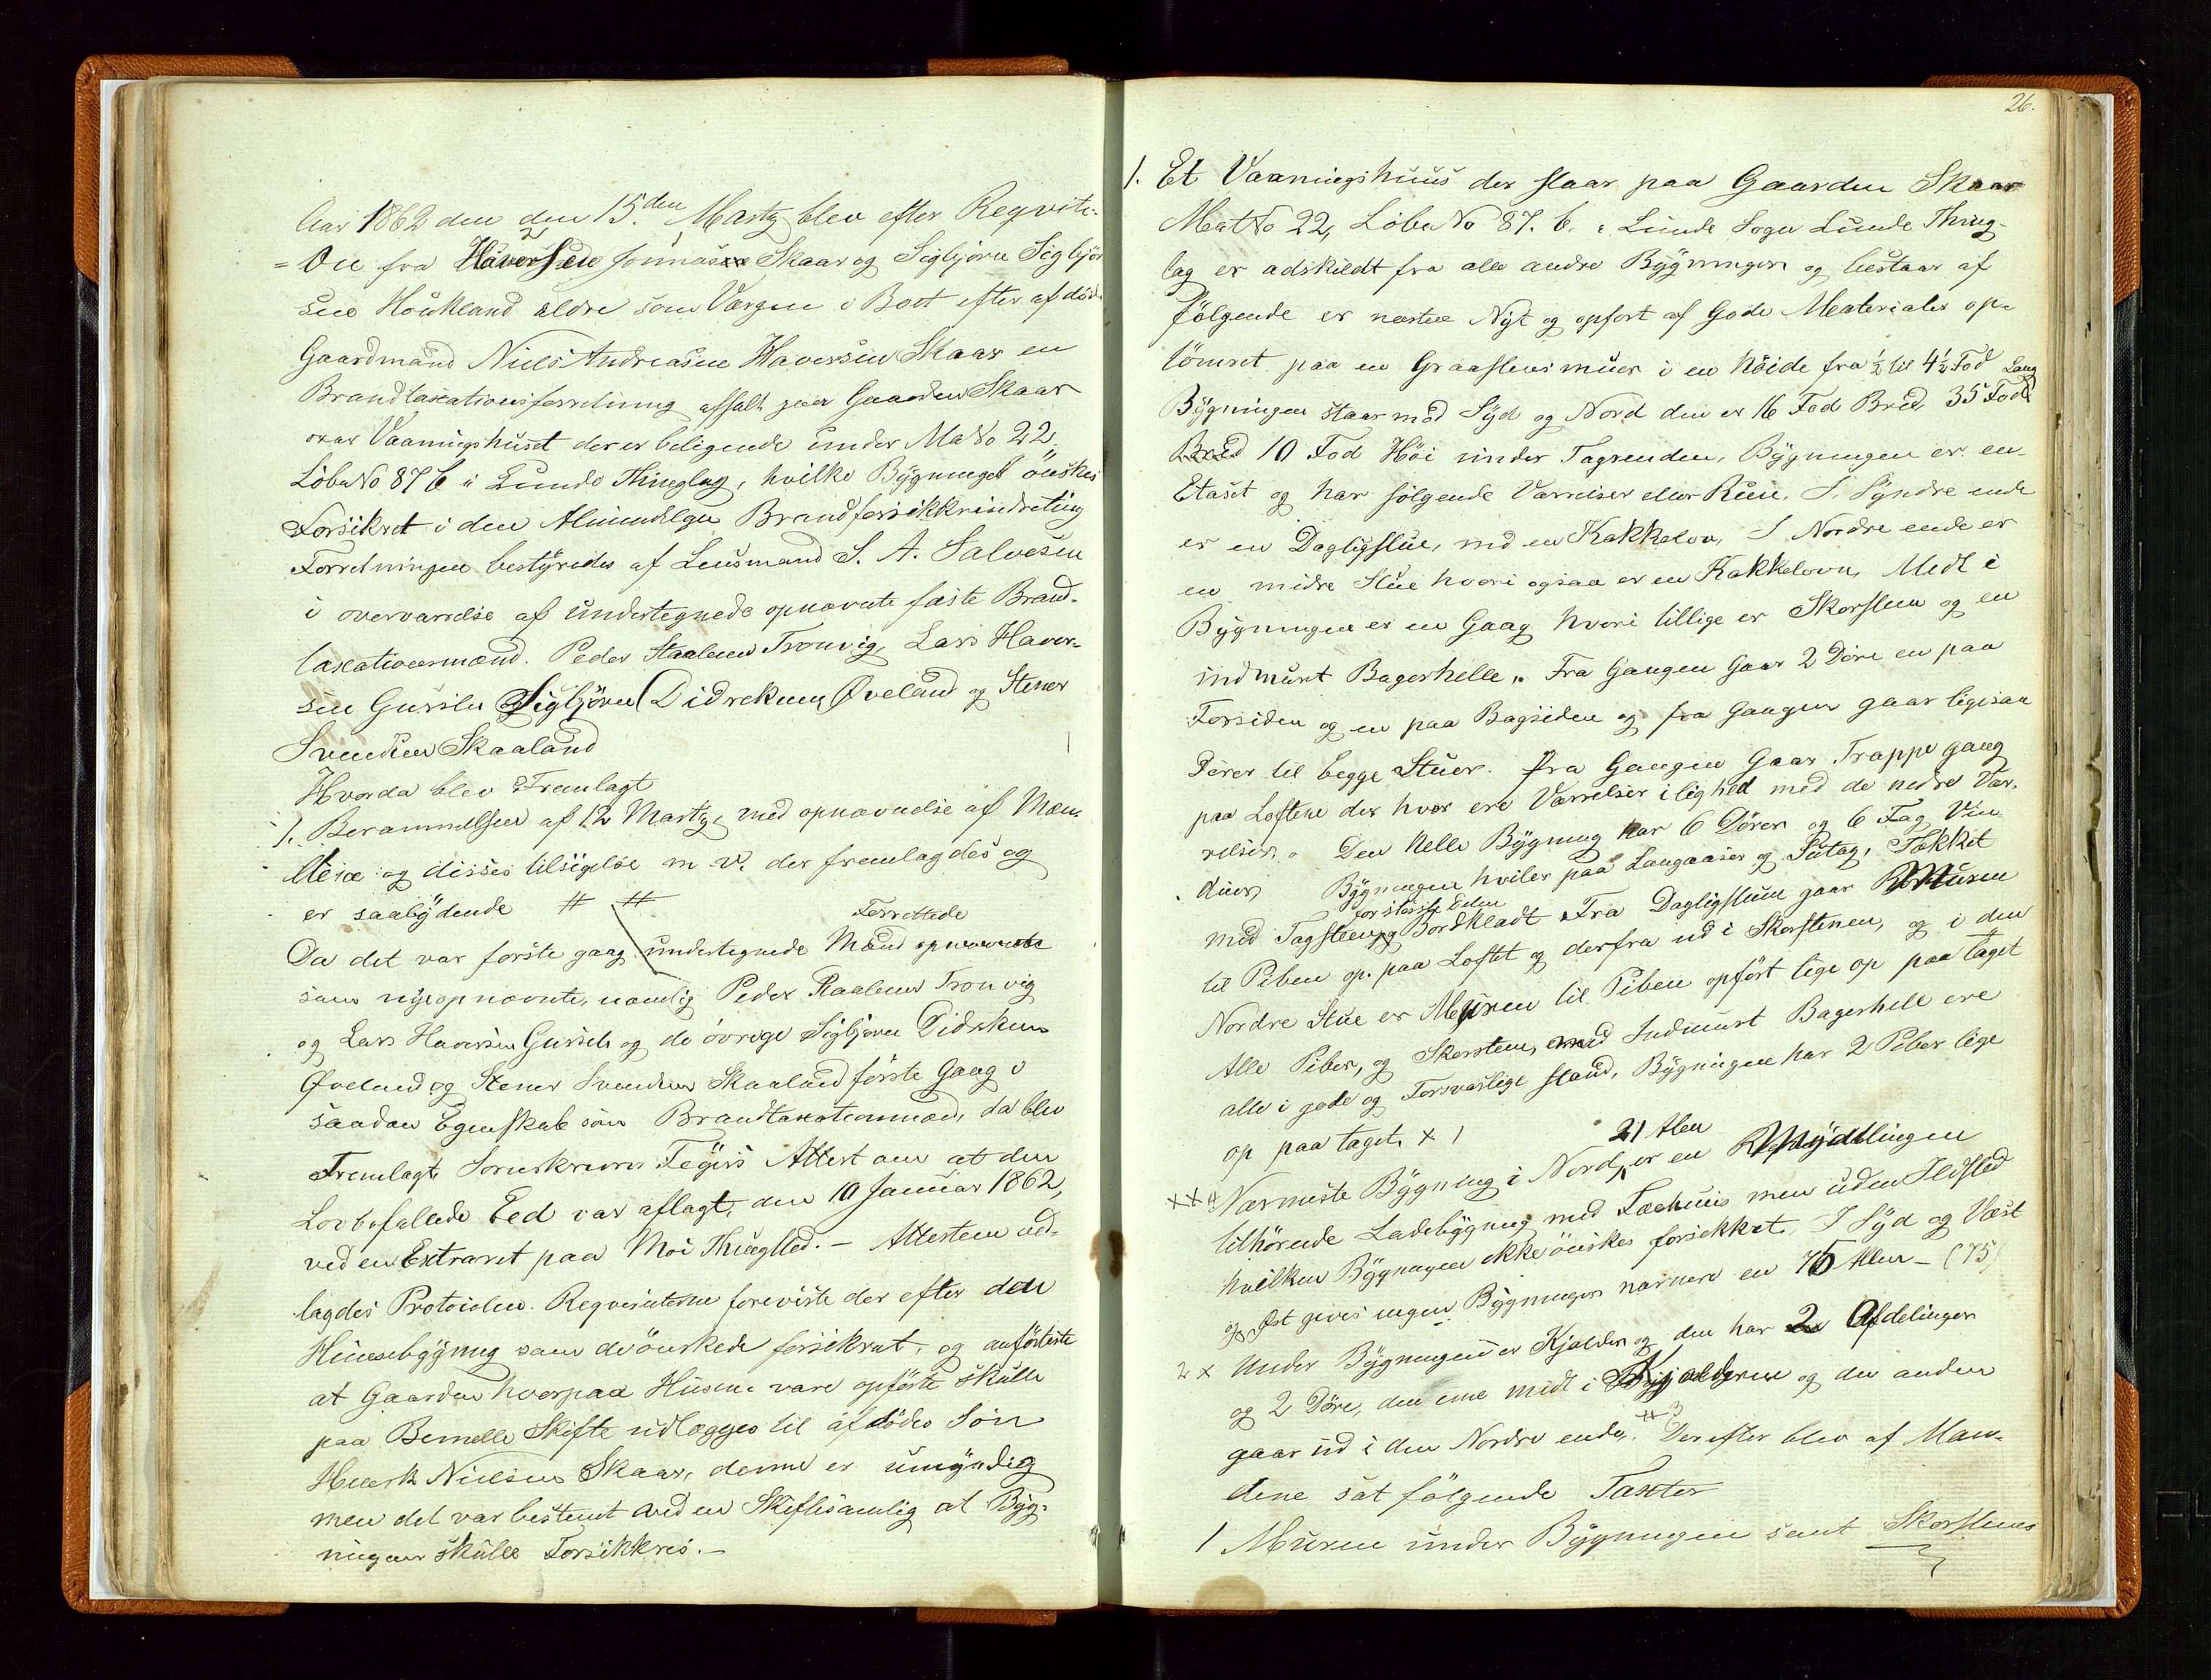 Aar 1862 den den 15.den Martz blev efter Reqviti-
= One fra Haversen Jonnasen Skaar og Sigbjørn Sigbjør
sen Houkland eldre som Værgen i Boet efter afdöde
Gaardmand Niels Andreasen Haversen Skaar en
Brandtaxationsforretning afhalt paa Gaarden Skaar
over Vaaningshuset der er beligende under MaNo 22
LöbeNo 87 b i Lunde Thinglag, hvilke Bygninget önskes
Forsikret i den Almindelgen Brand
Forretningen bestyredes af Lensmand S. A. Salvesen
i overværrelse af undertegnede opnævnte faste Brand-
taxationsmænd. Peder Staalesen Tronvig, Lars Haver-
sen Gursle Sigbjören Didreksen Øveland og Stener
Svendsen Skaaland
Hvorda blev Fremlagt
1. Berammelsen af 12 Martz, med opnævnelse af Mæn-
dene og disses tilsigelse m v. der fremlagdes og
er saalydende # #
Forrettede
Da det var förste gaag undertegnede Mænd opnævnte
som nye opnævnte, nemlig Peder Staalesen Tronvig
og Lars Haversen Gursle og de övrige Sigbjørn Didreksen
Øveland og Stener Svendsen Skaaland förste Gaag i
saadan Egenskab som Brandtaxationmænd, da blev
Fremlagt Sorenskriver Fegers Attest om at den
Lovbefallede Eed var aflagt, den 10 Januar 1862,
ved en Extraret paa Moi Thingsted. - Attesten ud-
lagdes Protocolen. Reqvirenterne foreviste der efter den
Huusebygning som de önskede forsikret, og anförteste
at Gaarden hvorpaa Husene vare opförte skulle
paa Bemelte Skifte udlægges til afdödes Sön
Henrik Nielsen Skaar, denne er umyndig
men det var bestemt ved en Skiftesamlig at Byg-
ningene skulle Forsikkres. -
26.
1. Et Vaaningshuus der staar paa Gaarden Skaar
MatNo 22, LöbeNo 87. b. i Lunde Sogn Lunde Thing-
lag er adskildt fra alle andre Bygninger og bestaar af
fölgende er næsten Nyt og opfört af Gode Materialer op-
tömret paa en Graastensmuer i en höide fra ½ til 4½ Fod Lang
Bygningen staar mod Syd og Nord den er 16 Fod Bred 35 Fod
Bred 10 Fod Höi under Tagrenden, Bygningen er en-
Etaset og har fölgende Værrelser eller Rum. I Syndre ende
er en Dagligstue, med en Kakkelov, I Nordre ende er
en midre Stue hvori ogsaa er en Kakkelovn, Midt i
Bygningen er en Gaag hvori tillige er Skorsteen og en
indmuret Bagerhelle. Fra Gangen Gaar 2 Döre en paa
Forsiden og en paa Bagsiden og fra Gangen gaar ligesaa
Dörer til begge Stuer. Fra Gangen Gaar Trappe gang
paa Loftene der hvor ere Værrelser i lighed med de nedre Vær-
relser. Den Helle Bygning har 6 Dörer og 6 Fag Vin-
duer, Bygningen hviler paa Langaaser og Sutag, Tækket
for störste Delen
med Tagsteen og Bordkladt Fra Dagligstuen gaar Muren
til Piben op paa Loftet og derfra ud i Skorstenen, og i den
Nordre Stue er Muren til Piben opfört lige op paa taget
Alle Piber, og Skorsten, med Indmuret Bagerhelle ere
alle i gode og Forsvarlige stand, Bygningen har 2 Piber lige
op paa taget x 1
21 Alen
xx # Nærmeste Bygning i Nord, er en Myndlingen
tilhörende Ladebygning med Fæehuus men uden Ildsted
hvilken Bygningen ikke önskes forsikket. I Syd og Væst
og Öst gives ingen Bygninger nærmere en 75 Alen - (75)
2 x Under Bygningen er Kjelder og den har 2 Afdelinger
og 2 Döre, den ene midt i Kjælderen og den anden
gaar ud i den Nordre ende. # 3 Derefter blev af Mæn-
dene sat fölgende Taxter
1 Muren under Bygningen samt Skorstenes